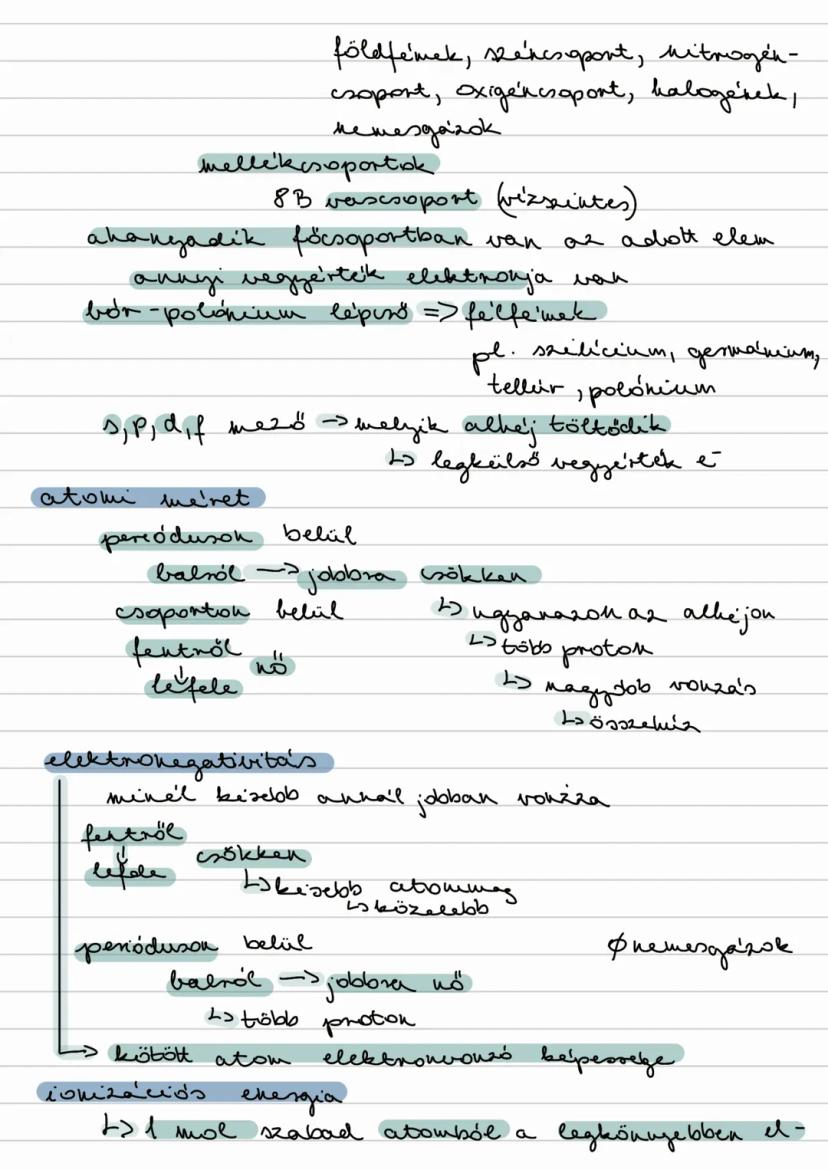 földfémek, széncsoport, nitrogén-
csoport, oxigéncsoport, halogének,
nemesgázok
mellékcsoportok
8B vascsoport (vízszintes)
ahanyadik főcsoportban van az adott elem
annyi vegyérték elektronja van
bór-polónium lépcső => félfémek
pl. szilícium, germánium,
tellúr, polónium
s, p, d, f mező → melyik alhéj töltődik
↳ legkülső vegyérték e⁻
atomi méret
perióduson belül
balról → jobbra csökken
csoporton belül ↳ ugyanazon az alhéjon
fentről ↳ több proton
↓ nő
lefele ↳ nagyobb vonzás
↳ összehúz
elektronegativitás
minél kisebb annál jobban vonzza
fentről
↓ csökken
lefele ↳ kisebb atommag
↳ közelebb
perióduson belül ∅ nemesgázok
balról → jobbra nő
↳ több proton
→ kötött atom elektronvonzó képessége
ionizációs energia
↳ 1 mol szabad atomból a legkönnyebben el-